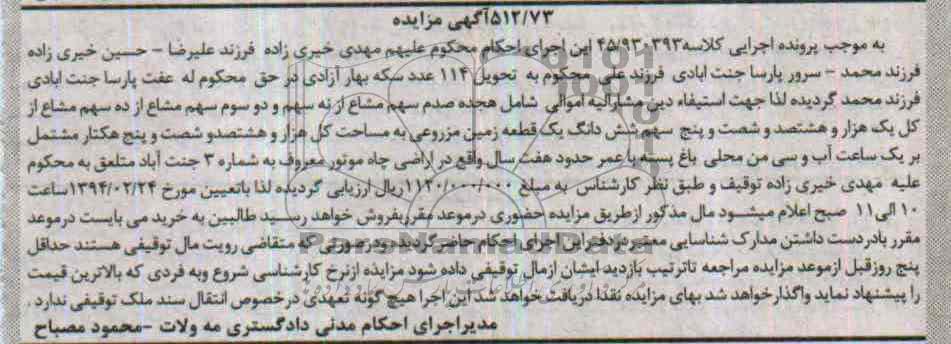 ۵۱۲/۷۳آگهی مزایده
به موجب پرونده اجرایی کلاسه۴۵/۹۳۰۳۹۳ این اجرای احکام محکوم علیهم مهدی خیری زاده فرزند علیرضا – حسین خیری زاده
فرزند محمد – سرور پارسا جنت ابادی فرزند علی محکوم به تحویل ۱۱۴ عدد سکه بهار آزادی در حق محکوم له عفت پارسا جنت ابادی
فرزند محمد گردیده لذا جهت استیفاء دین مشارالیه اموالی شامل هجده صدم سهم مشاع از نه سهم و دو سوم سهم مشاع از ده سهم مشاع از
کل یک هزار و هشتصد و شصت و پنج سهم شش دانگ یک قطعه زمین مزروعی به مساحت کل هزار و هشتصدو شصت و پنج هکتار مشتمل
بر یک ساعت آب و سی من محلی باغ پسته با عمر حدود هفت سال واقع در اراضی چاه موتور معروف به شماره ۳ جنت آباد متلعق به محکوم
علیه مهدی خیری زاده توقیف و طبق نظر کارشناس به مبلغ ۱۱۲۰/۰۰۰/۰۰۰ریال ارزیابی گردیده لذا باتعیین مورخ ۱۳۹۴/۰۲/۲۴ساعت
۱۰ الی۱۱ صبح اعلام میشود مال مذکور ازطریق مزایده حضوری درموعد مقرربفروش خواهد رسید طالبین به خرید می بایست درموعد
مقرر بادردست داشتن مدارک شناسایی معتبردردفتراین اجرای احکام حاضرگردیده ودرصورتی که متقاضی رویت مال توقیفی هستند حداقل
پنج روزقبل ازموعد مزایده مراجعه تاترتیب بازدید ایشان ازمال توقیفی داده شود مزایده ازنرخ کارشناسی شروع وبه فردی که بالاترین قیمت
را پیشنهاد نماید واگذارخواهد شد بهای مزایده نقدا دریافت خواهد شد این اجرا هیچ گونه تعهدی درخصوص انتقال سند ملک توقیفی ندارد .
مدیراجرای احکام مدنی دادگستری مه ولات -محمود مصباح